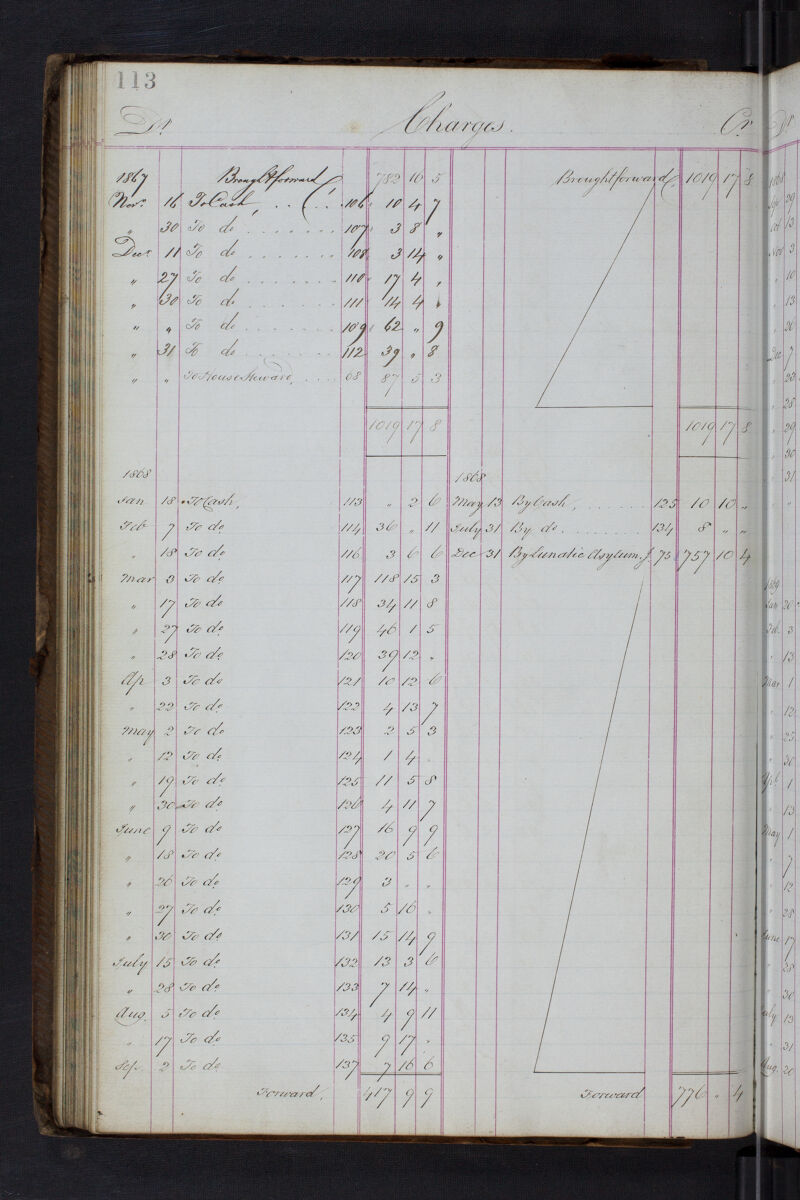 113
Dr. Charges. Cr.
1867 Brought forward 782 10 5 Brought forward 1019 17 8
Novr. 16 To Cash, 106 10 4 7
" 30 To do 107 3 8 "
Decr. 11 To do 108 3 14 "
" 27 To do 110 17 4 "
" 30 To do 111 14 4 "
" " To do 109 62 " 9
" 31 To do 112 39 " 8
" " To House Steward, 68 87 5 3
1019 17 8 1019 17 8
1868 1868
Jan 18 To Cash, 113 " 2 6 May 13 By Cash, 125 10 10 "
Feb 7 To do 114 36 " 11 July 31 By do 134 8 " "
" 18 To do 116 3 6 6 Dec 31 By Lunatic Asylum 75 757 10 4
Mar 3 To do 117 118 15 3
" 17 To do 118 34 11 8
" 27 To do 119 46 1 5
" 28 To do 120 39 12 "
Ap 3 To do 121 10 12 6
" 22 To do 122 4 13 7
May 2 To do 123 2 5 3
" 12 To do 124 1 4 "
" 19 To do 125 11 5 8
" 30 To do 126 4 11 7
June 9 To do 127 16 9 9
" 18 To do 128 20 5 6
" 26 To do 129 3 " "
" 27 To do 130 5 16 "
" 30 To do 131 15 14 9
July 15 To do 132 13 3 6
" 28 To do 133 7 14 "
Aug. 5 To do 134 4 9 11
" 17 To do 135 9 17 "
Sep. 2 To do 137 7 16 6
Forward, 417 9 9 Forward 776 " 4